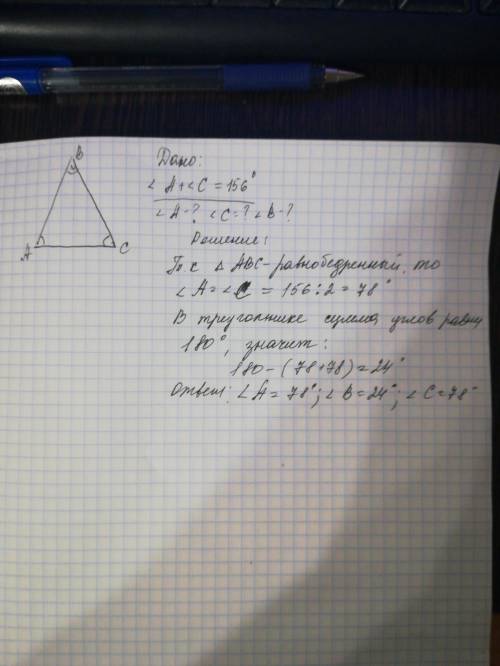 B
Дано:
∠ A+∠ C = 156°
∠ A-? ∠ C=? ∠ B-?
A C
Решение:
Т.к ∆ ABC-равнобедренный, то
∠ A = ∠ C = 156:2 = 78°
В треугольнике сумма углов равны
180°, значит:
180 - (78+78) = 24°
Ответ: ∠ A = 78°; ∠ B = 24°; ∠ C = 78°